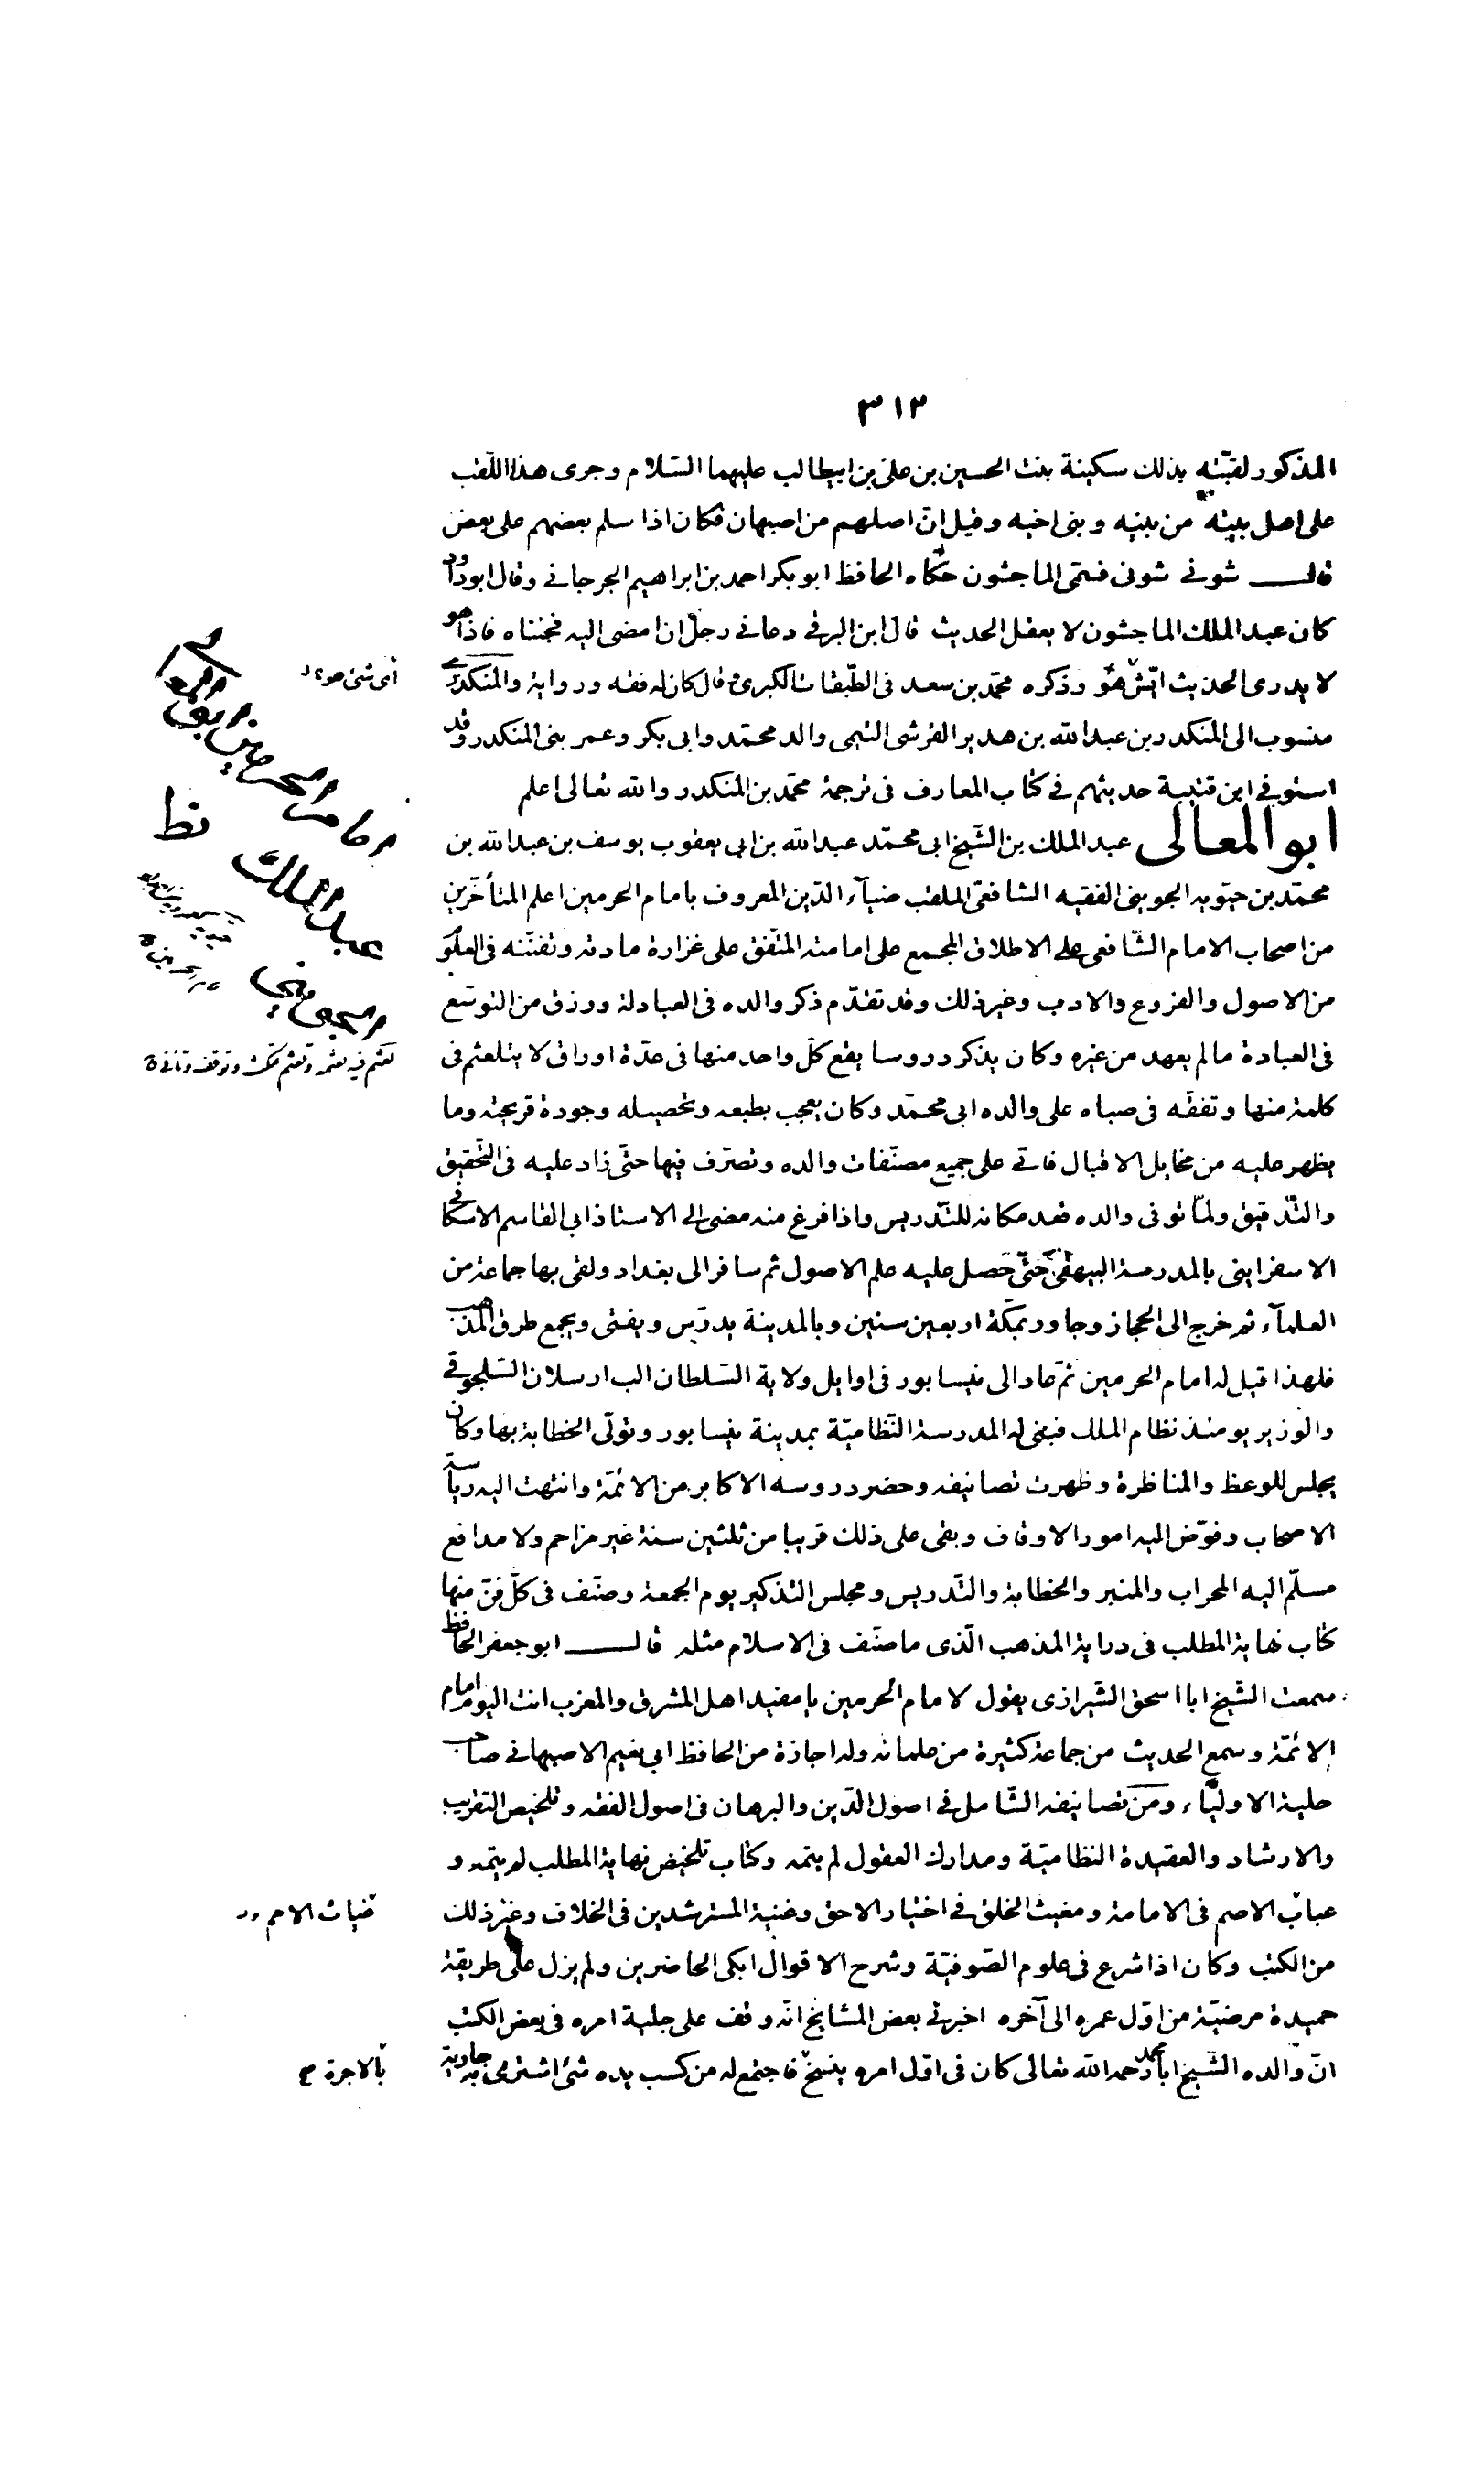 ٣١٢
المذكور لقبّته بذلك سكينة بنت الحسين بن علىّ بن ابيطالب عليهما السّلام وجرى هذا اللّقب
على اهل بيته من بنيه وبنى اخيه وقيل انّ اصلهم من اصبهان فكان اذا سلم بعضهم على بعض
قال شونى شونى فسمّى الماجشون حكاه الحافظ ابو بكر احمد بن ابراهيم الجرجانى وقال ابو داود
كان عبد الملك الماجشون لا يعقل الحديث قال ابن البرقى دعانى رجل ان امضى اليه فجئناه فاذا هو
لا يدرى الحديث ايش هو وذكره محمّد بن سعد فى الطّبقات الكبرى وقال كان له فقه ورواية والمنكدرى
منسوب الى المنكدر بن عبد الله بن هدير القرشى التيمى والد محمّد وابى بكر وعمر بنى المنكدر وقد
استوفى ابن قتيبة حديثهم فى كتاب المعارف فى ترجمة محمّد بن المنكدر والله تعالى اعلم
ابو المعالى عبد الملك بن الشّيخ ابى محمّد عبد الله بن ابى يعقوب يوسف بن عبد الله بن
محمّد بن حيّويه الجوينى الفقيه الشافعىّ الملقب ضيآء الدّين المعروف بامام الحرمين اعلم المتأخّرين
من اصحاب الامام الشّافعى على الاطلاق المجمع على امامته المتّفق على غزارة مادته وتفنّنه فى العلوم
من الاصول والفروع والادب وغير ذلك وقد تقدّم ذكر والده فى العبادلة ورزق من التوسّع
فى العبادة ما لم يعهد من غيره وكان يذكر دروسا يقع كلّ واحد منها فى عدّة اوراق لا يتلعثم فى
كلمة منها وتفقّه فى صباه على والده ابى محمّد وكان يعجب بطبعه وتحصيله وجودة قريحته وما
يظهر عليه من مخايل الاقبال فاتى على جميع مصنّفات والده وتصرّف فيها حتّى زاد عليه فى التّحقيق
والتّدقيق ولمّا توفى والده قعد مكانه للتّدريس واذا فرغ منه مضى الى الاستاذ ابى القاسم الاسكافى
الاسفراينى بالمدرسة البيهقى حتّى حصل عليه علم الاصول ثم سافر الى بغداد ولقى بها جماعة من
العلمآء ثم خرج الى الحجاز وجاور بمكّة اربعين سنين وبالمدينة يدرّس ويفتى ويجمع طرق المذهب
فلهذا قيل له امام الحرمين ثمّ عاد الى نيسابور فى اوايل ولاية السّلطان الب ارسلان السّلجوقى
والوزير يومئذ نظام الملك فبنى له المدرسة النّظاميّة بمدينة نيسابور وتولّى الخطابة بها وكان
يجلس للوعظ والمناظرة وظهرت تصانيفه وحضر دروسه الاكابر من الائمّة وانتهت اليه رياسة
الاصحاب وفوّض اليه امور الاوقاف وبقى على ذلك قريبا من ثلثين سنة غير مزاحم ولا مدافع
مسلّم اليه المحراب والمنبر والخطابة والتّدريس ومجلس التذكير يوم الجمعة وصنّف فى كلّ فنّ منها
كتاب نهاية المطلب فى دراية المذهب الّذى ما صنّف فى الاسلام مثله قال ابو جعفر الحافظ
سمعت الشّيخ ابا اسحق الشّيرازى يقول لامام الحرمين يا مفيد اهل المشرق والمغرب انت اليوم امام
الائمّة وسمع الحديث من جماعة كثيرة من علمائه وله اجازة من الحافظ ابى نعيم الاصبهانى صاحب
حلية الاوليآء ومن تصانيفه الشّامل فى اصول الدّين والبرهان فى اصول الفقه وتلخيص التقريب
والارشاد والعقيدة النظاميّة ومدارك العقول لم يتمه وكتاب تلخيص نهاية المطلب لم يتمه و
عباث الاصم فى الامامة ومغيث الخلق فى اختيار الاحق وغنية المسترشدين فى الخلاف وغير ذلك
من الكتب وكان اذا شرع فى علوم الصّوفيّة وشرح الاقوال ابكى الحاضرين ولم يزل على طريقة
حميدة مرضيّة من اوّل عمره الى آخره اخبرنى بعض المشايخ انّه وقف على جلية امره فى بعض الكتب
انّ والده الشّيخ ابا محمد رحمه الله تعالى كان فى اوّل امره ينسخ فاجتمع له من كسب يده شئ اشترى به جارية
اى شئ هو
ابو المعالى
امام الحرمين
نظ
عبد الملك
الجوينى
تلعثم فيه لعثمه وتلعثم تمكث وتوقف وتانى
غياث الامم
بالاجرة